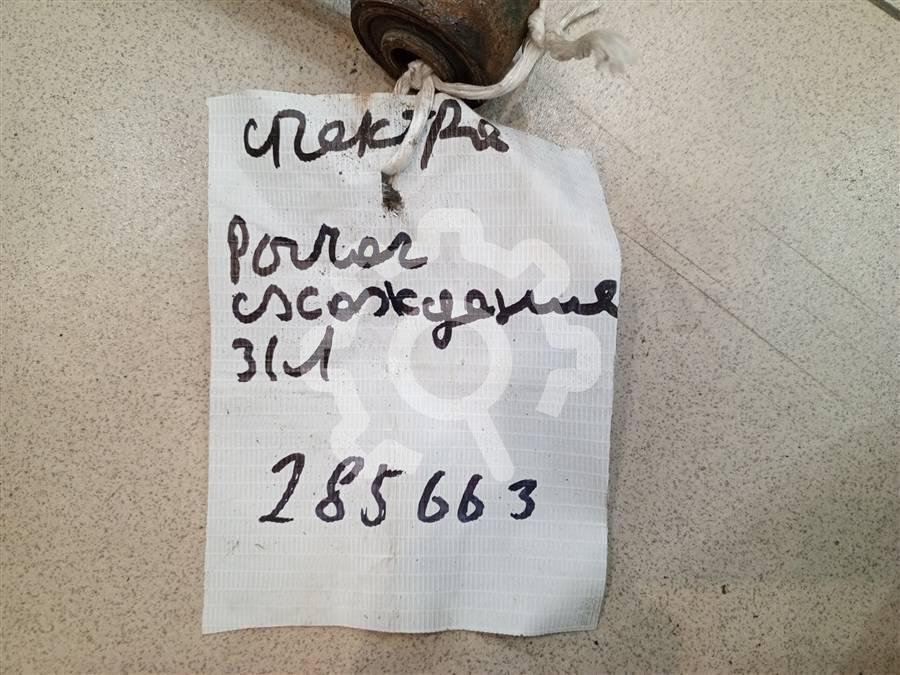 спектра
Рычаг
схождения
З/Л
285663